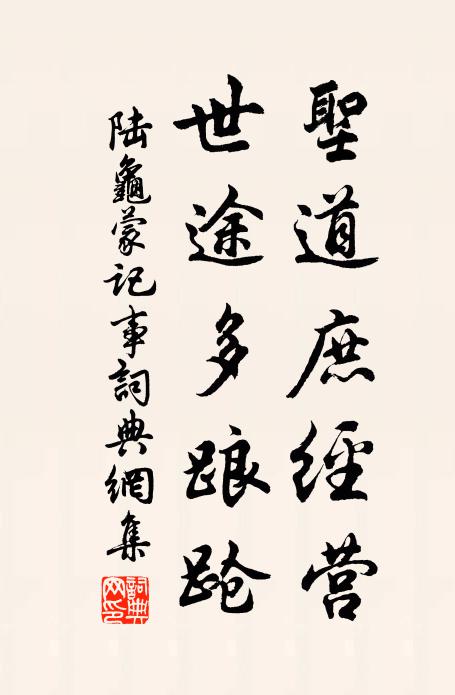 聖道庶經营
世途多踉蹌
陆龜蒙记事詞典網集
詞典网印